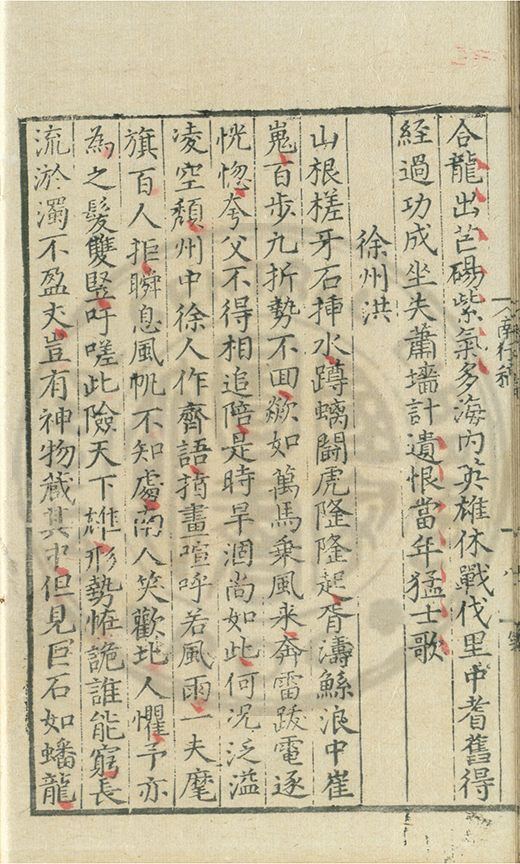 合龍出芒碭紫氣多海內英雄休戰伐里中耆舊得
經過功成坐失蕭墻計遺恨當年猛士歌
徐州洪
山根槎牙石揷水蹲螭鬪虎隆隆起胥濤鯀浪中崔
嵬百步九折勢不回欻如萬馬乘風来奔雷跋電逐
恍惚夸父不得相追陪是時旱涸尚如此何况泛溢
凌空頽州中徐人作齊語指畫喧呼若風雨一夫麾
旗百人拒瞬息風帆不知處南人笑歡北人懼予亦
為之髮雙竪吁嗟此險天下雄形勢恠詭誰能窮長
流淤濁不盈丈豈有神物藏其中但見巨石如蟠龍
南行稿